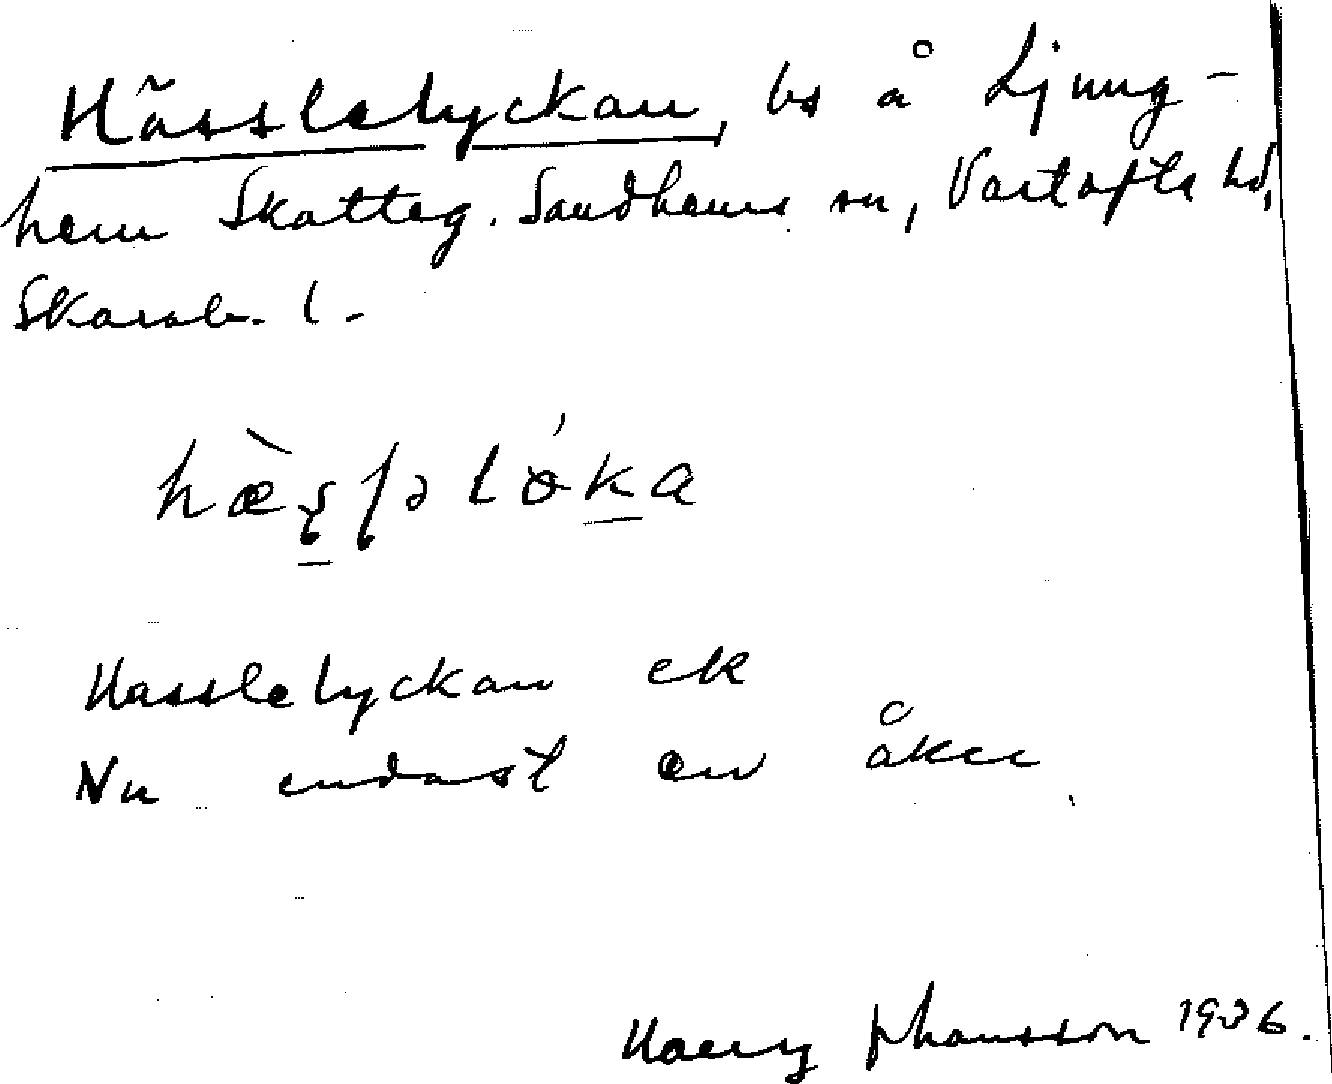 Hässlelyckan, bs å Ljung-
hem Skatteg. Sandhems sn, Vartofta hd,
Skarab. l.
hæ̀ʂʃə lǿka
Hasslelyckan ek
Nu endast en åker
Harry Johansson 1936.